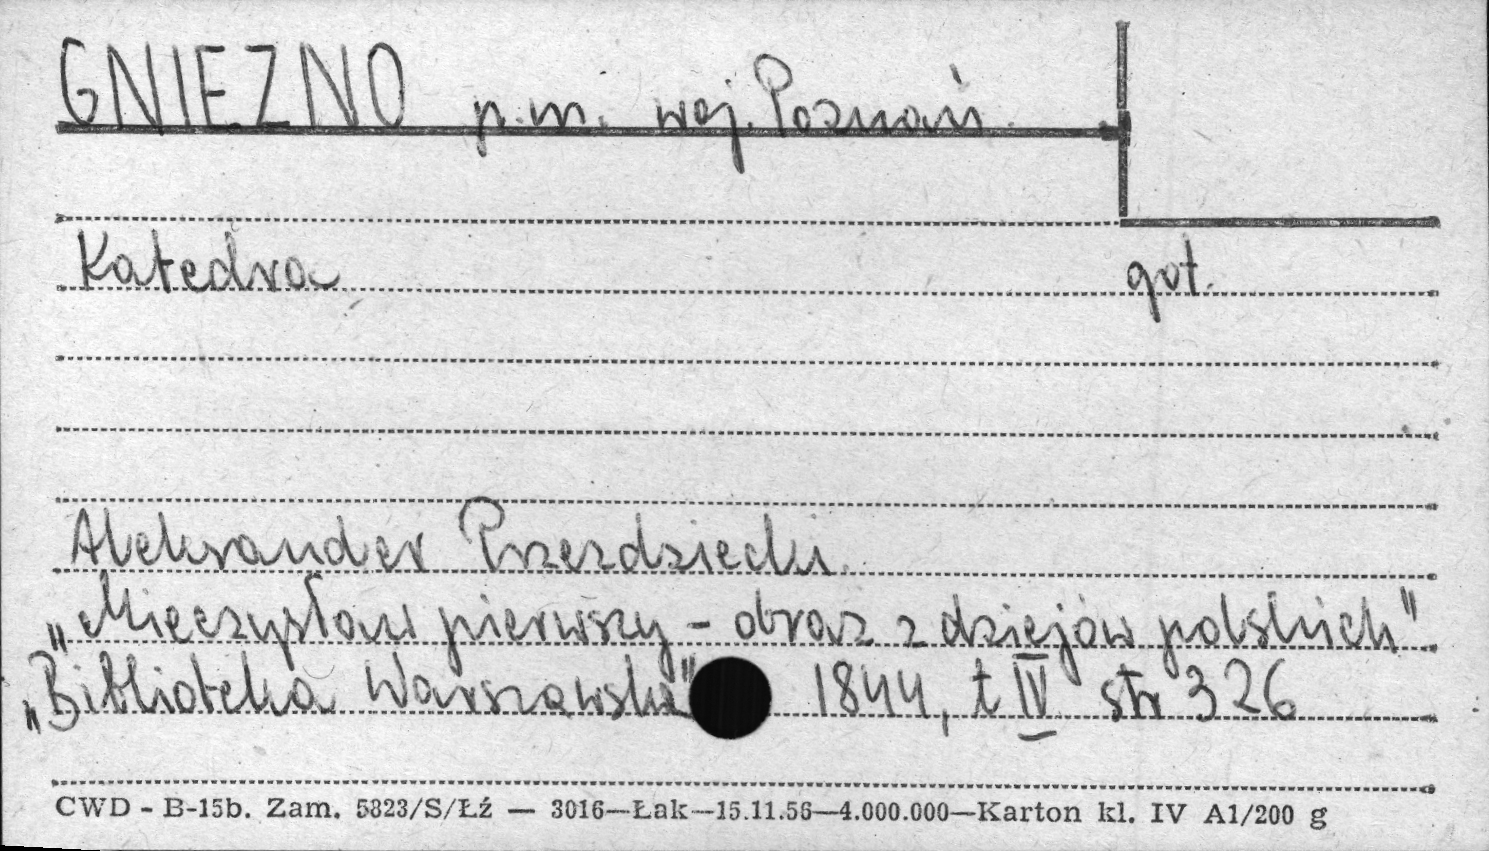 GNIEZNO p.m. woj. Poznań
Katedra got.
Aleksander Przezdziecki
„Mieczysław pierwszy - obraz z dziejów polskich"
„Biblioteka Warszawska" 1844, t IV str 326
CWD - B-15b. Zam. 5823/S/Łź — 3016—Łak—15.11.56—4.000.000—Karton kl. IV A1/200 g